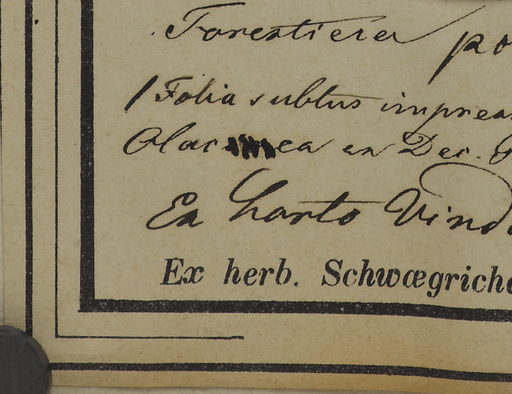 Forestiera po
/ Folia subtus impres
Olac ea ex Dec.
Ex horto Vindo
Ex herb. Schwægriche